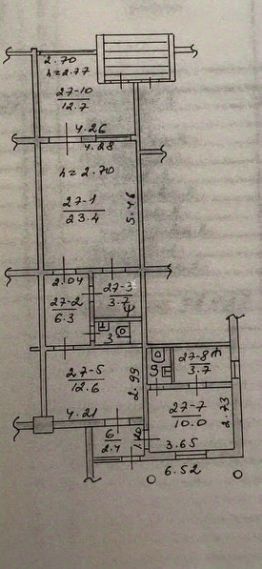 2.70
h=2.77
27-10
12.7
4.26
4.28
h=2.70
27-1
23.4
5.46
2.04
27-3
3.7
27-2
6.3
3
27-5
12.6
2.99
4.21
6
2.4
1.40
9
27-8
3.7
27-7
10.0
2.73
3.65
6.52